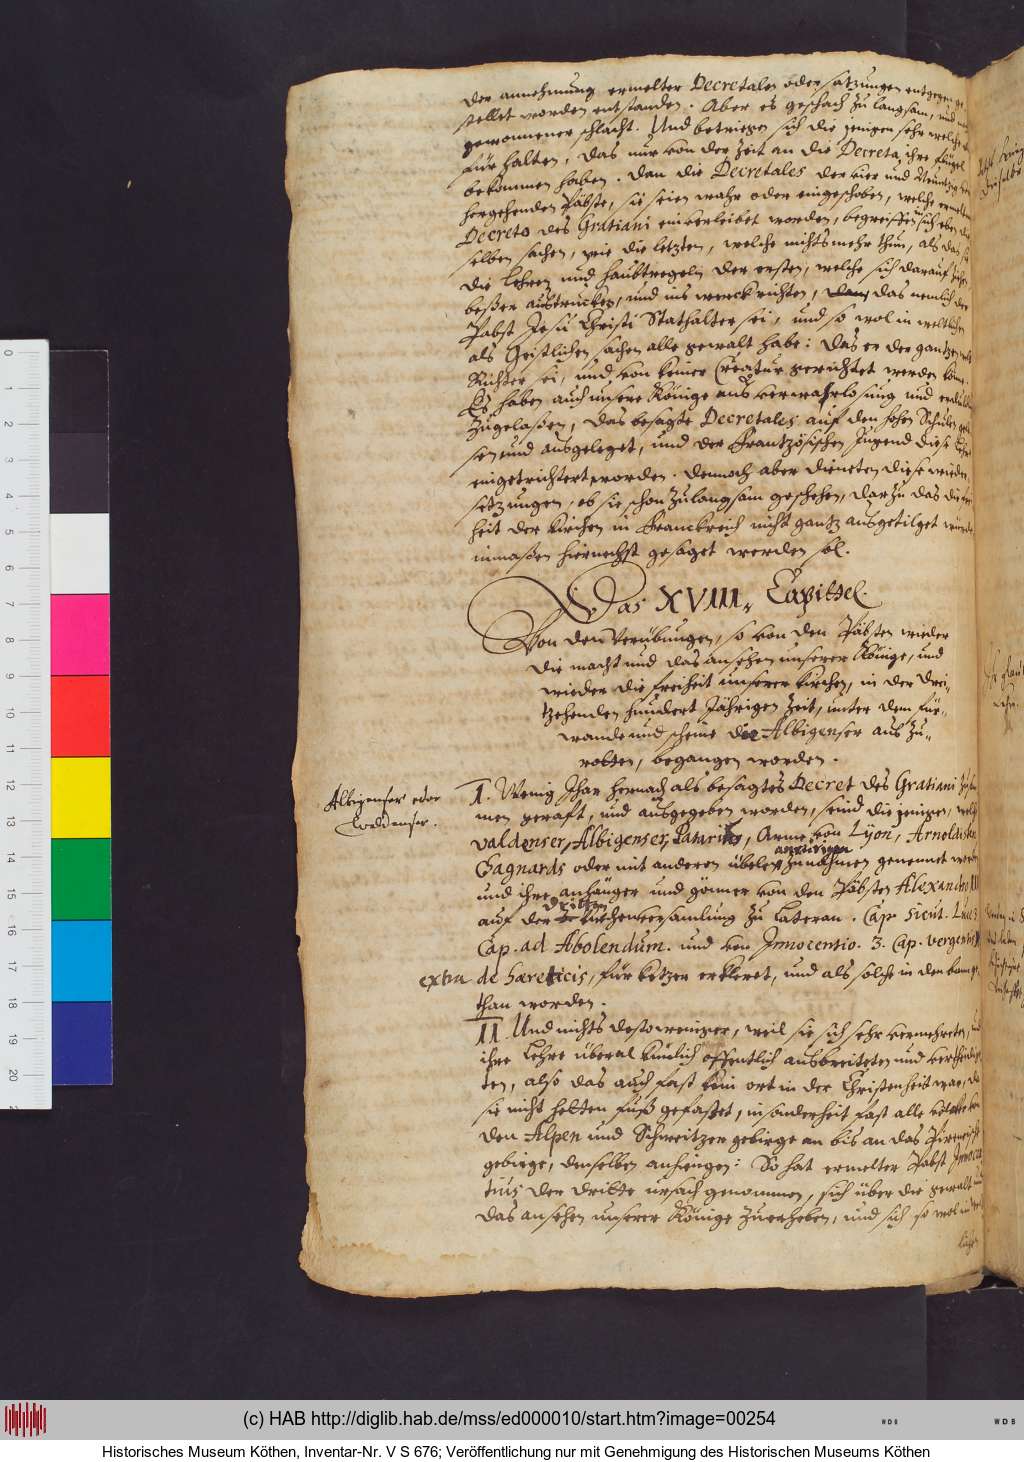 der annehmung ermelter Decretalen oder satzungen entgegen ge
stellet worden entstanden. Aber es geschach zu langsam, und nach
gewonnener schlacht. Und betriegen sich die jenigen sehr welche
für halten, das nur von der Zeit an die Decreta, ihre flügel
bekommen haben. dan die Decretales der vier und Neuntzig vor
hergehenden Päbste, sie seien wahr oder eingeschoben, welche ermeltem
Decreto des Gratiani einverleibet worden, begreiffen in sich eben die
selben sachen, wie die letzten, welche nichts mehr thun, als das sie
die Lehren und haubtregeln der ersten, welche sich darauf ziehen,
beßer austrucken, und ins werck richten, das nemlich der
Pabst Jesu Christi Stathalter sei, und so wol in weltlichen
als Geistlichen sachen alle gewalt habe: das er der gantzen welt
Richter sei, und von keiner Creatur gerichtet werden könne.
Es haben auch unsere Könige aus verwahrlosung und
zugelaßen, das besagte Decretales auf den hohen Schulen gele
sen und ausgeleget, und der Frantzösischen Jugend diese Lehre
eingetrichtert worden. dennoch aber dieneten diese wieder
setzungen, ob sie schon zu langsam geschehen, darzu das die frei
heit der kirchen in Franckreich nicht gantz ausgetilget würde
inmaßen hiernechst gesaget werden sol.
Das XVIII. Capittel.
Von den Verübungen, so von den Päbsten wieder
die macht und das ansehen unserer Könige, und
wieder die freiheit unserer kirchen, in der drei-
tzehenden hundert Jährigen Zeit, unter dem für-
wande und scheine die Albigenser aus zu-
rotten, begangen worden.
Albigenser oder
Waldenser.
I. Wenig Jhar hernach als besagtes Decret des Gratiani zusam
men geraft, und ausgegeben worden, seind die jenigen, welche
Valdenser, Albigenser, Patarins, Arme von Lyon, Arnoldisten
Gagnards oder mit anderen übelen zunahmen genennet werden
und ihre anhänger und gönner von den Päbsten Alexandro III
auf der dritten kirchenversamlung zu Lateran. Cap. sicut. Luc. 3.
Cap. ad Abolendum. und von Innocentio. 3. Cap. vergentis
extra de haereticis, für ketzer erkleret, und als solche in den bann ge
than worden.
II. Und nichts desto weniger, weil sie sich sehr vermehreten, und
ihre Lehre überal künlich offentlich ausbreiteten und vertheidig
ten, also das auch fast kein ort in der Christenheit war, da
sie nicht hetten fuß gefaßet, insonderheit fast alle völcker von
den Alpen und Schweitzer gebirge an bis an das Pireneische
gebirge, denselben anhiengen: So hat ermelter Pabst Innocen
tius der dritte ursach genommen, sich über die gewalt und
das ansehen unserer Könige zuerheben, und sich so wol in
(c) HAB http://diglib.hab.de/mss/ed000010/start.htm?image=00254
WDB
WDB
Historisches Museum Köthen, Inventar-Nr. V S 676; Veröffentlichung nur mit Genehmigung des Historischen Museums Köthen